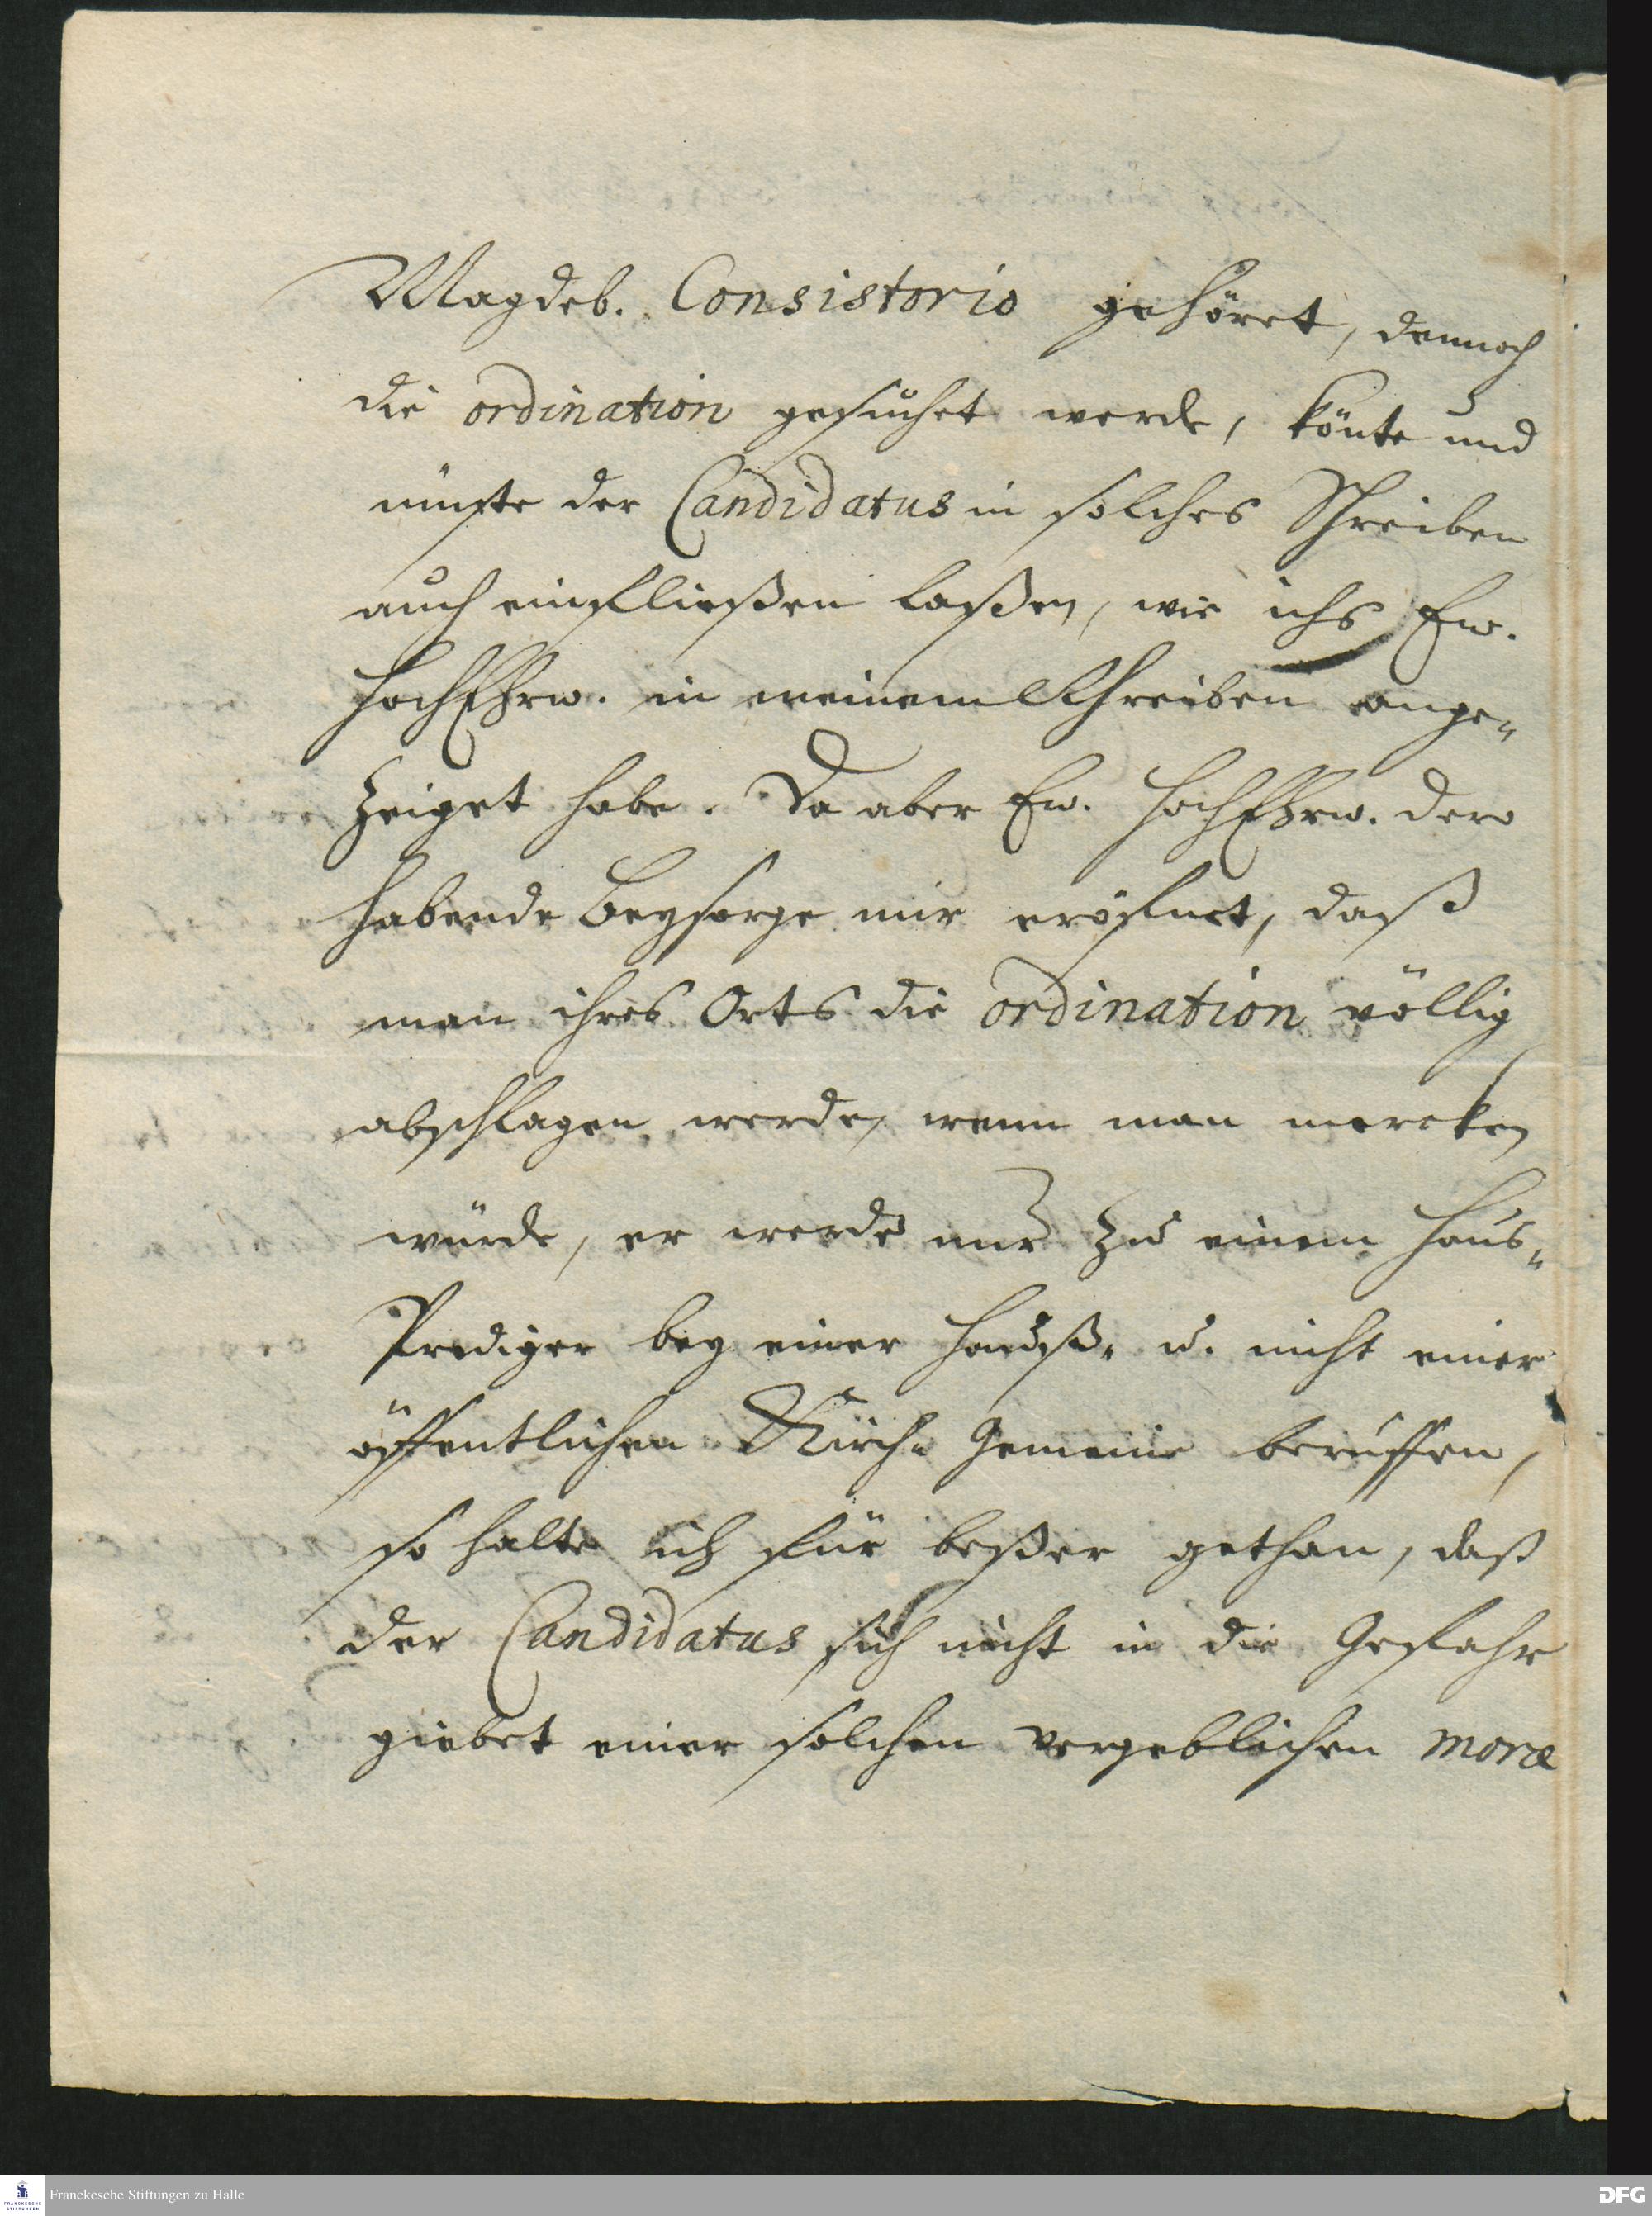 Magdeb. Consistorio gehöret, dennoch
die ordination gesuchet werde, könte und
müste der Candidatus in solches Schreiben
auch einfließen laßen, wie ichs Ew.
HochEhrw. in meinem Schreiben ange„
zeiget habe. Da aber Ew. HochEhrw. dero
habende Beysorge mir eröfnet, daß
man ihres Orts die ordination völlig
abschlagen werde, wenn man mercken
würde, er werde nur zu einem Haus„
Prediger bey einer Hauß„ u. nicht einer
öffentlichen Kirch„ Gemeine beruffen,
so halte ich für beßer gethan, daß
der Candidatus sich nicht in die Gefahr
giebet einer solchen vergeblichen moræ
FRANCKESCHE STIFTUNGEN
Franckesche Stiftungen zu Halle
DFG